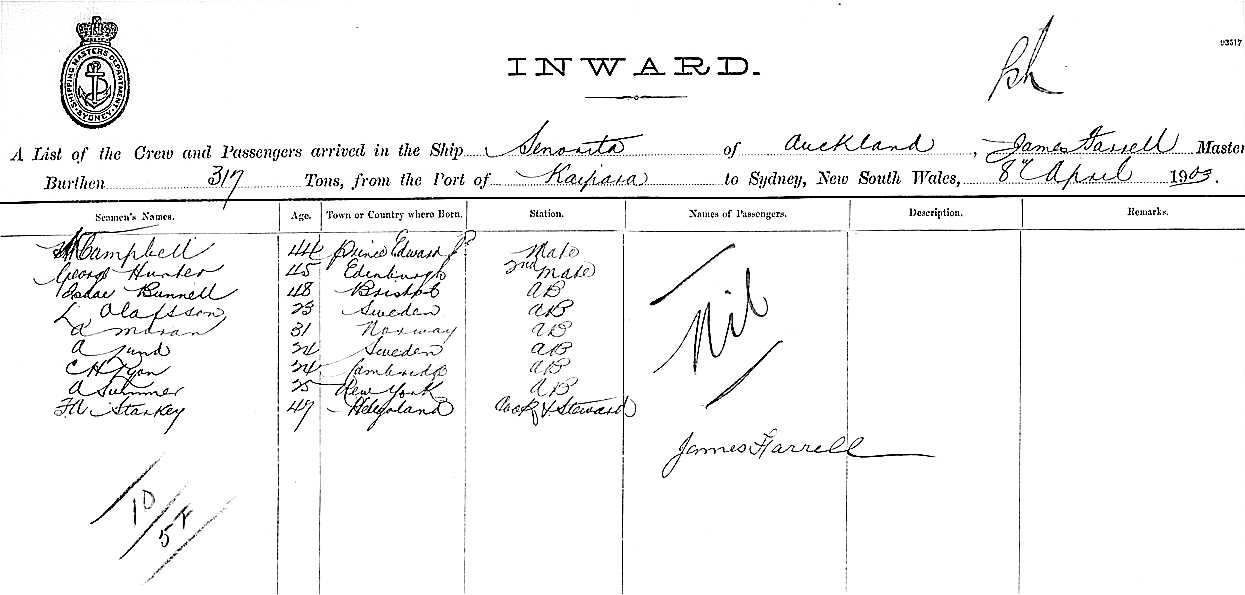 SHIPPING MASTERS DEPARTMENT
SYDNEY
93517
INWARD.
A List of the Crew and Passengers arrived in the Ship Senorita of Auckland, James Farrell Master
Burthen 317 Tons, from the Port of Kaipara to Sydney, New South Wales, 8th April 1903.
Seamen's Names. Age. Town or Country where Born. Station. Names of Passengers. Description. Remarks.
Campbell 44 Prince Edward I^s Mate
George Hunter 45 Edinburgh 2nd Mate
Isaac Bunnell 48 Bristol AB
L Olafsson 23 Sweden AB
A Moran 31 Norway AB
A Lund 24 Sweden AB
C H Lyon 24 Cambridge AB
A Sumner 25 New York AB
F.A Starkey 47 Helgoland Cook & Steward
Nil
James Farrell
10
5 F